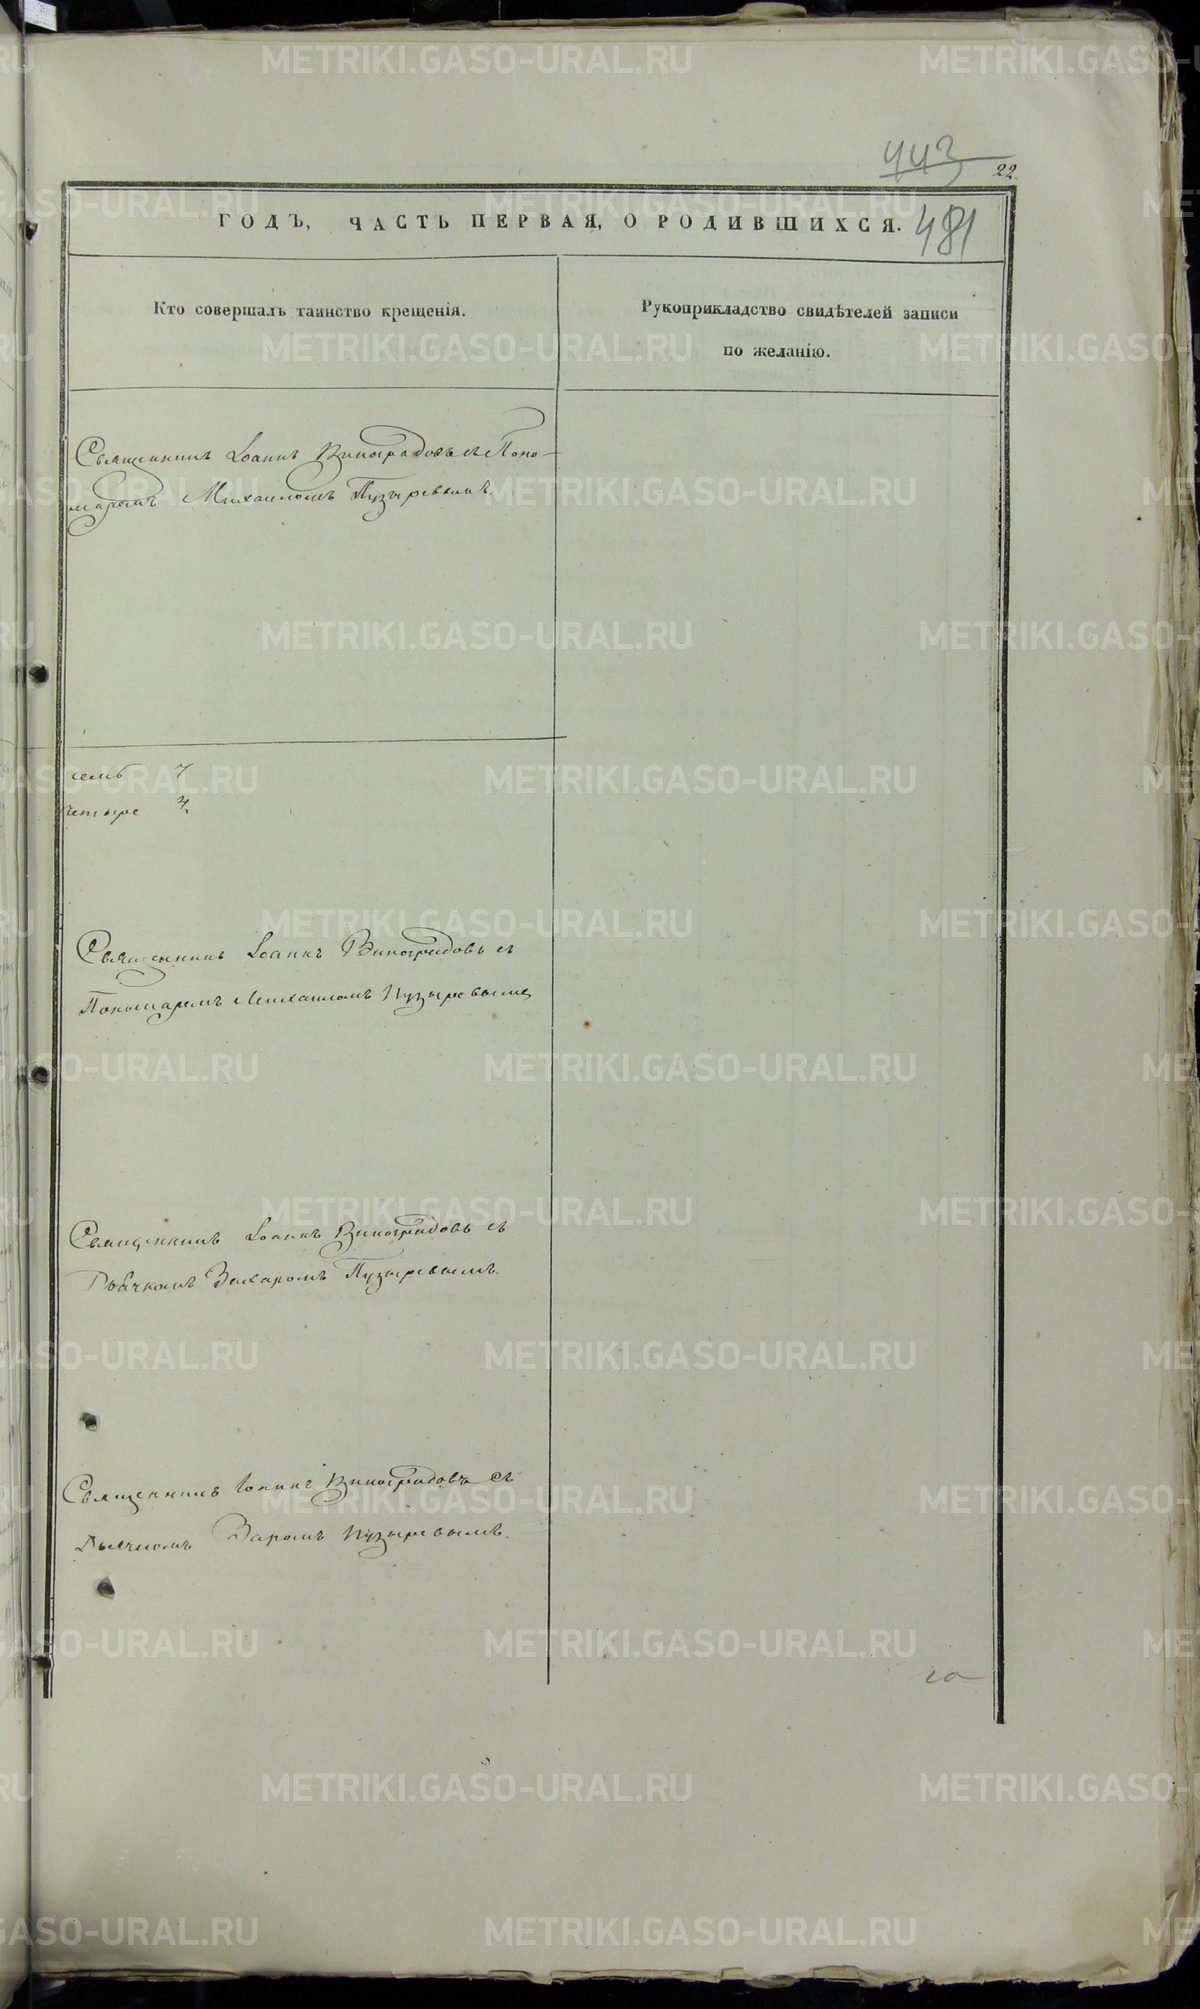 443
22
ГОДЪ, ЧАСТЬ ПЕРВАЯ, О РОДИВШИХСЯ.
481
Кто совершалъ таинство крещенія.
Рукоприкладство свидѣтелей записи
по желанію.
Священникъ Іоаннъ Виноградовъ съ Поно-
маремъ Михаиломъ Пузыревымъ.
семь 7
четыре 4.
Священникъ Іоаннъ Виноградовъ съ
Пономаремъ Михаиломъ Пузыревымъ
Священникъ Іоаннъ Виноградовъ съ
Дьячкомъ Захаромъ Пузыревымъ.
Священникъ Іоаннъ Виноградовъ съ
Дьячкомъ Заромъ Пузыревымъ.
METRIKI.GASO-URAL.RU